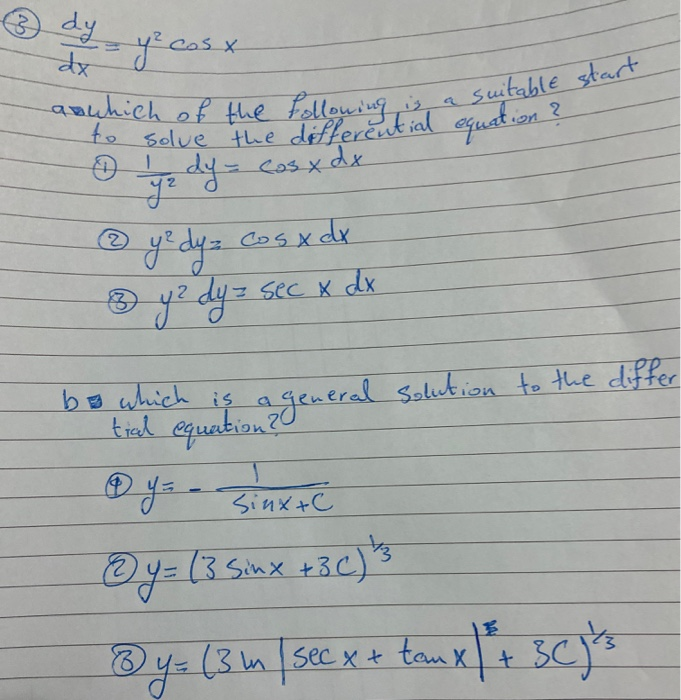 ③ dy/dx = y² cos x
a which of the following is a suitable start
to solve the differential equation?
① 1/y² dy = cos x dx
② y² dy = cos x dx
③ y² dy = sec x dx
b which is a general solution to the differ
tial equation?
① y = - 1/(sin x + C)
② y = (3 sin x + 3C)^1/3
③ y = (3 ln |sec x + tan x| + 3C)^1/3